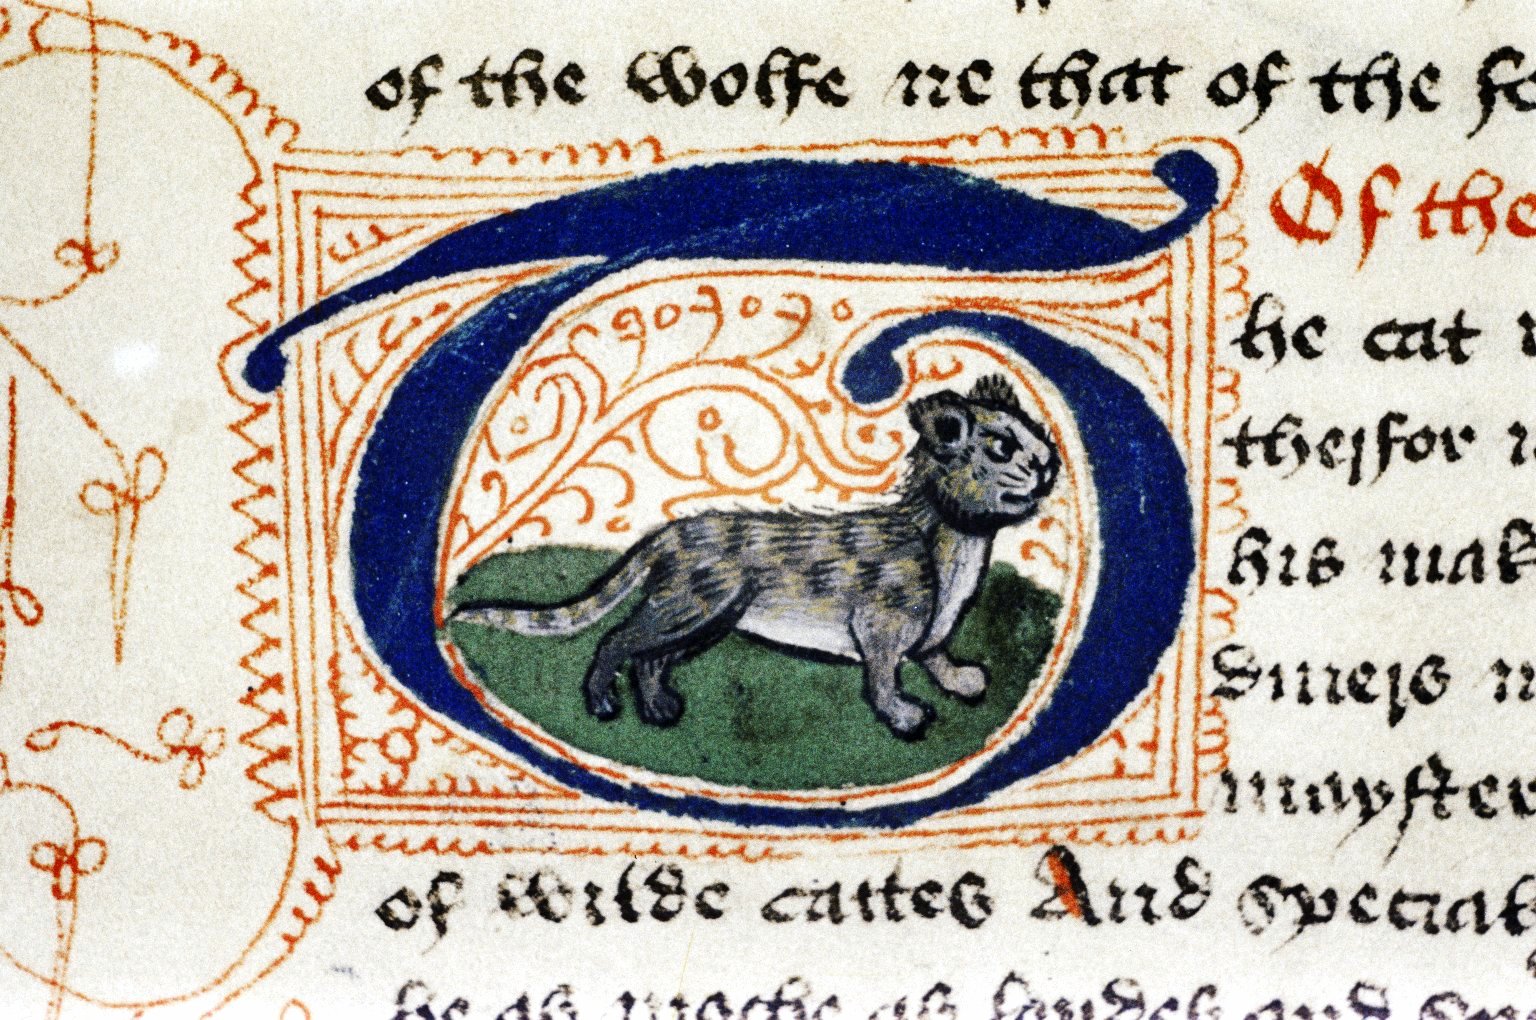 of the wolfe ne that of the
Of the
The cat
therfor
his mak
diuers
mayster
of wilde cattes And special
he as